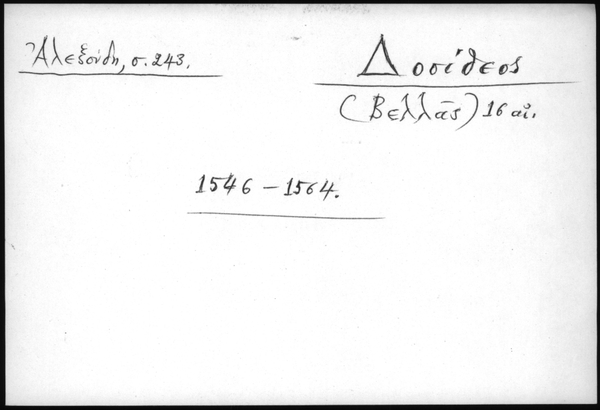 Ἀλεξούδη, σ. 243.
Δοσίθεος
(Βελλᾶς) 16 αἰ.
1546 – 1564.